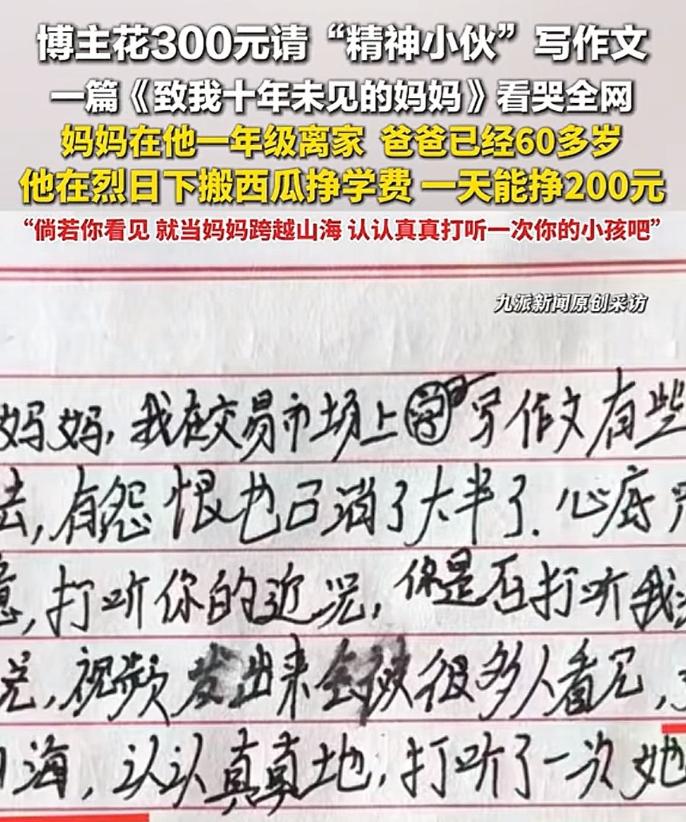 博主花300元请“精神小伙”写作文
一篇《致我十年未见的妈妈》看哭全网
妈妈在他一年级离家 爸爸已经60多岁
他在烈日下搬西瓜挣学费 一天能挣200元
“倘若你看见 就当妈妈跨越山海 认认真真打听一次你的小孩吧”
九派新闻原创采访
妈妈,我在交易市场上写作文有些
去,有怨恨也已消了大半了.心底
意,打听你的近况,你是否打听我
况,视频发出来会被很多人看见,
山海,认认真真地,打听了一次她